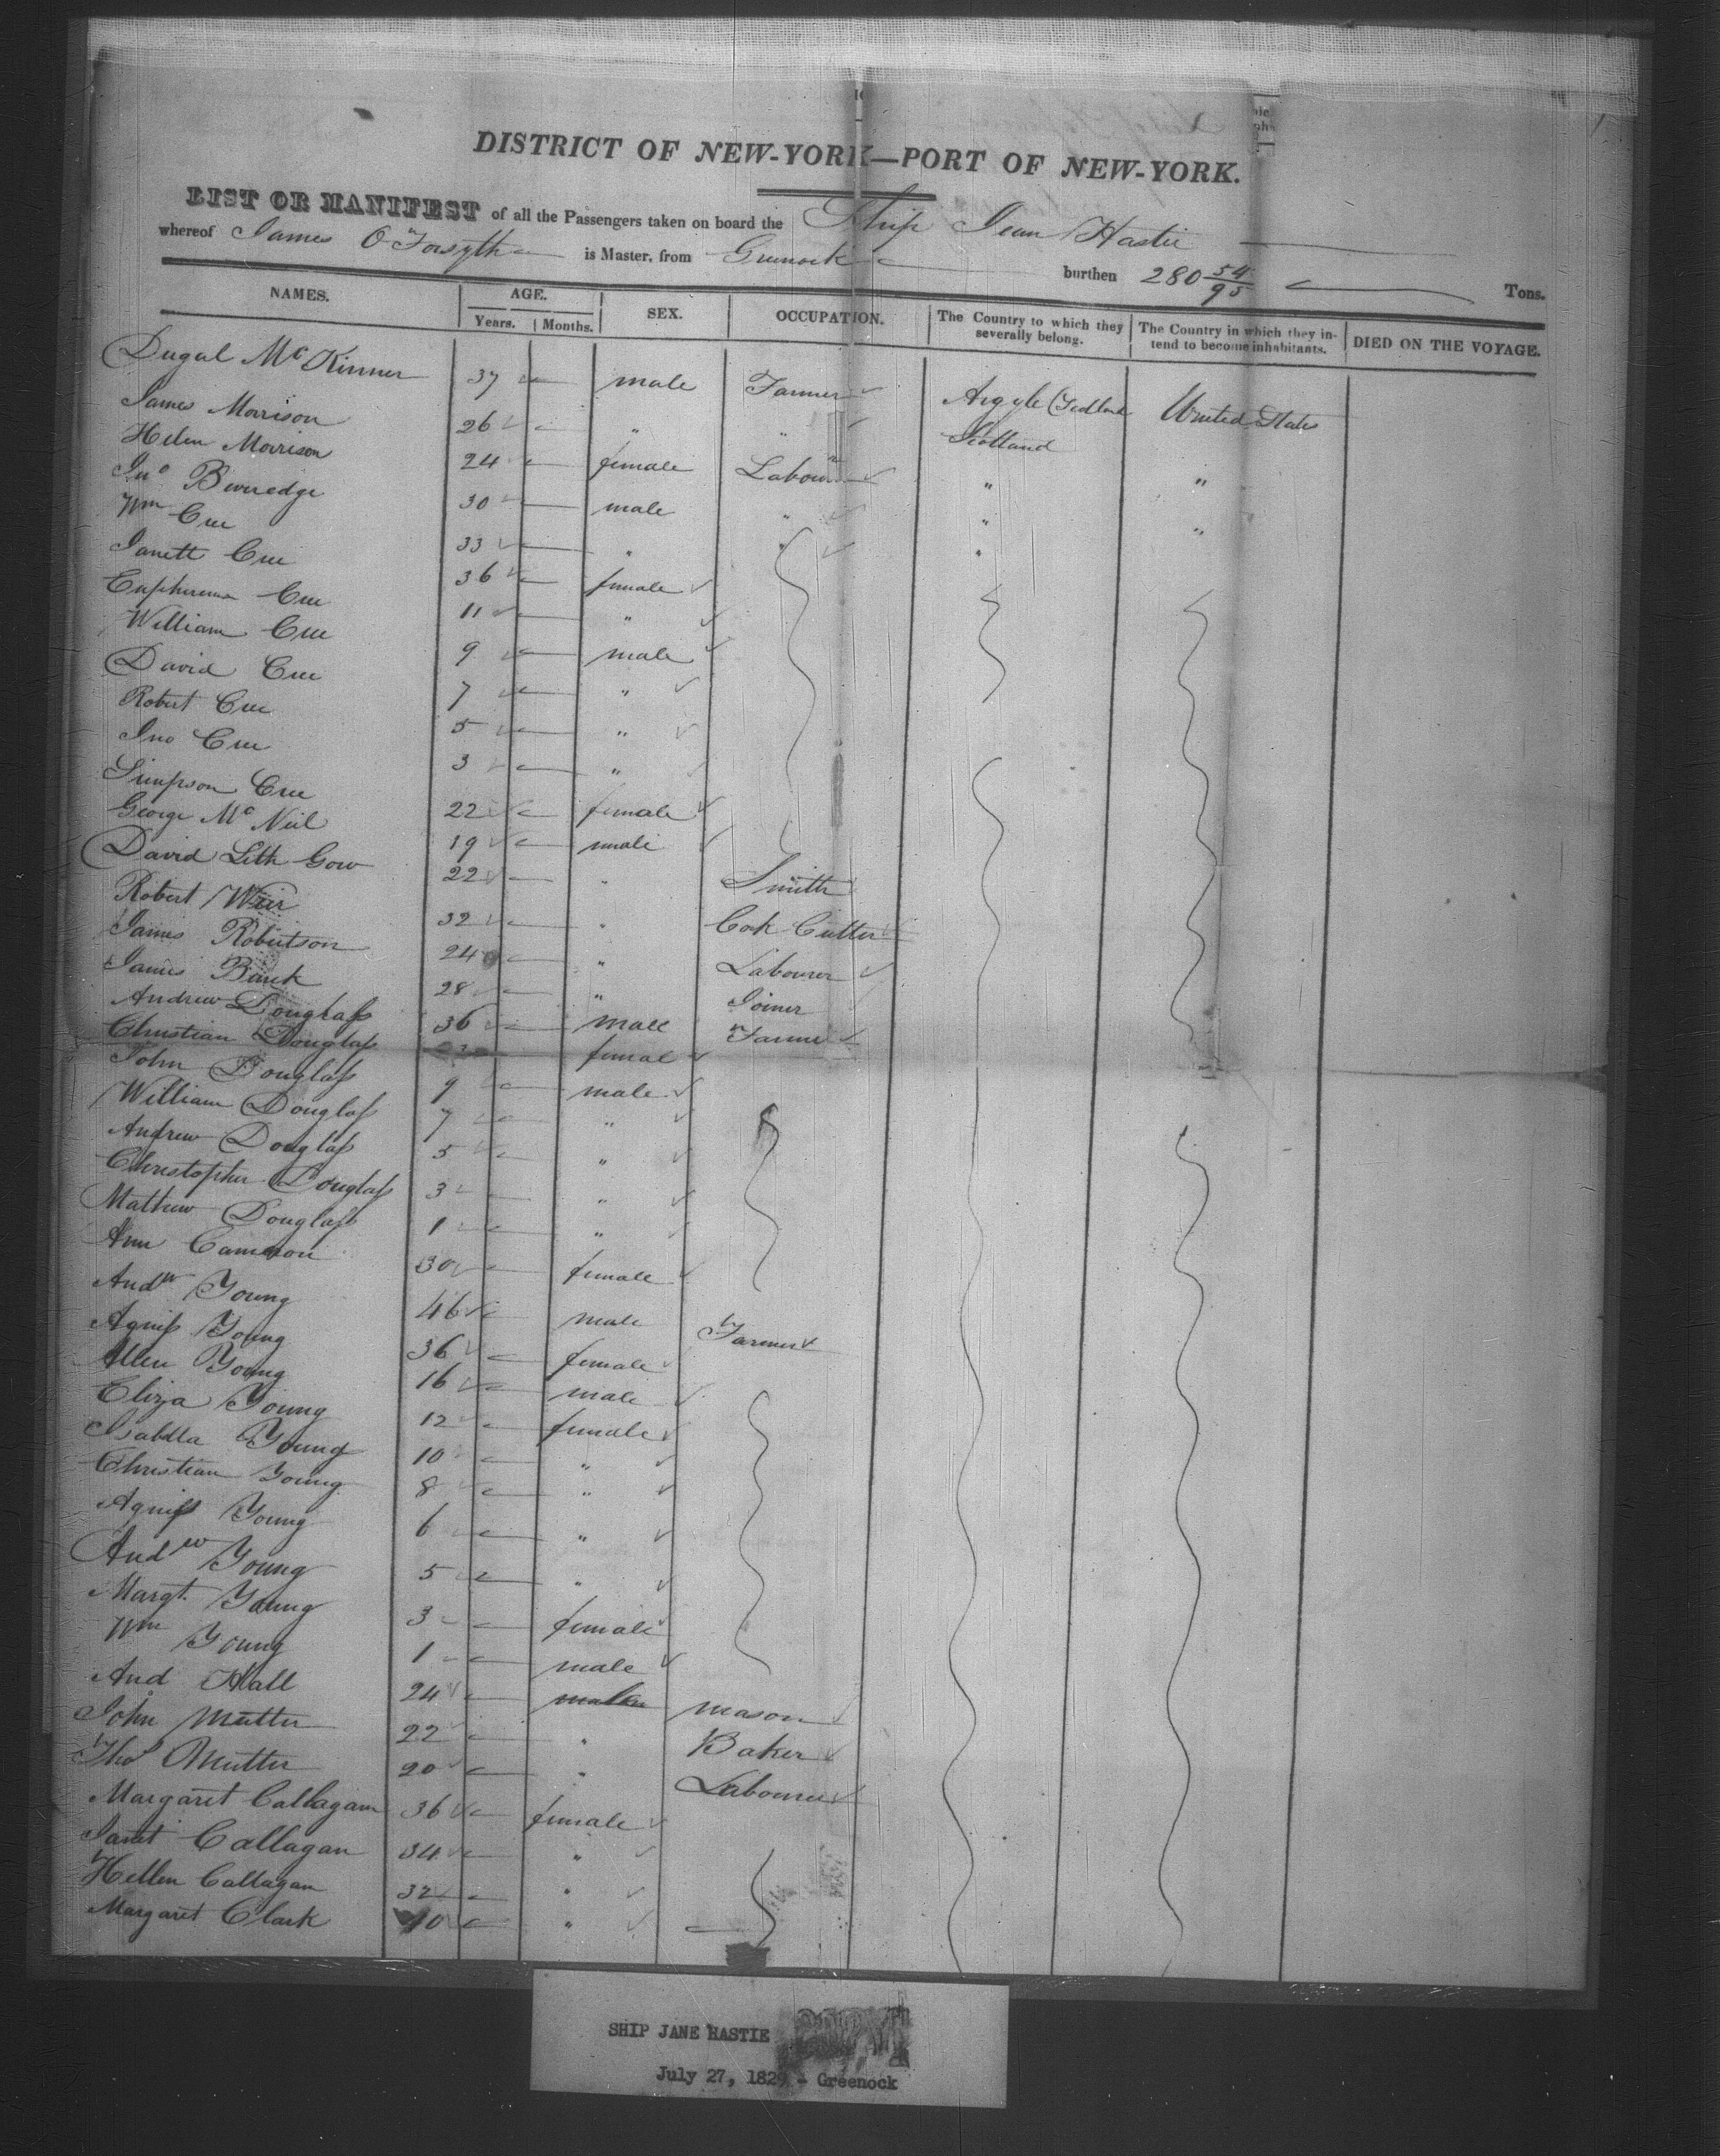 DISTRICT OF NEW-YORK—PORT OF NEW-YORK.
LIST OR MANIFEST of all the Passengers taken on board the Ship Jean Hastie
whereof James O Forsyth is Master, from Greenock burthen 280 54/95 Tons.
NAMES. AGE. SEX. OCCUPATION. The Country to which they severally belong. The Country in which they intend to become inhabitants. DIED ON THE VOYAGE.
Years. Months.
Dugal Mc Kinner 37 male Farmer Argyle United States
James Morrison 26 " " Scotland
Helen Morrison 24 female Labour " "
Jno Beveredge 30 male " " "
Wm Cree 33 " " "
Janett Cree 36 female
Euphemia Cree 11 "
William Cree 9 male
David Cree 7 "
Robert Cree 5 "
Jno Cree 3 "
Simpson Cree 22 female
George Mc Neil 19 male
David Lith Gow 22 " Smith
Robert Weir 32 " Cork Cutter
James Robertson 24 " Labourer
James 28 " Joiner
Andrew Douglass 36 male Farmer
Christian Douglass female
John Douglass 9 male
William Douglass 7 "
Andrew Douglass 5 "
Christopher Douglass 3 "
Mathew Douglass 1 "
Ann Cameron 30 female
Andw Young 46 male Farmer
Agniss Young 36 female
Allen Young 16 male
Eliza Young 12 female
Isabella Young 10 "
Christian Young 8 "
Agniss Young 6 "
Andw Young 5 "
Margt. Young 3 female
Wm Young 1 male
And Hall 24 male mason
John Mutter 22 " Baker
Thos Mutter 20 " Labourer
Margaret Callagan 36 female
Janet Callagan 34 "
Hellen Callagan 32 "
Margaret Clark 10 "
SHIP JANE HASTIE
July 27, 1829 - Greenock